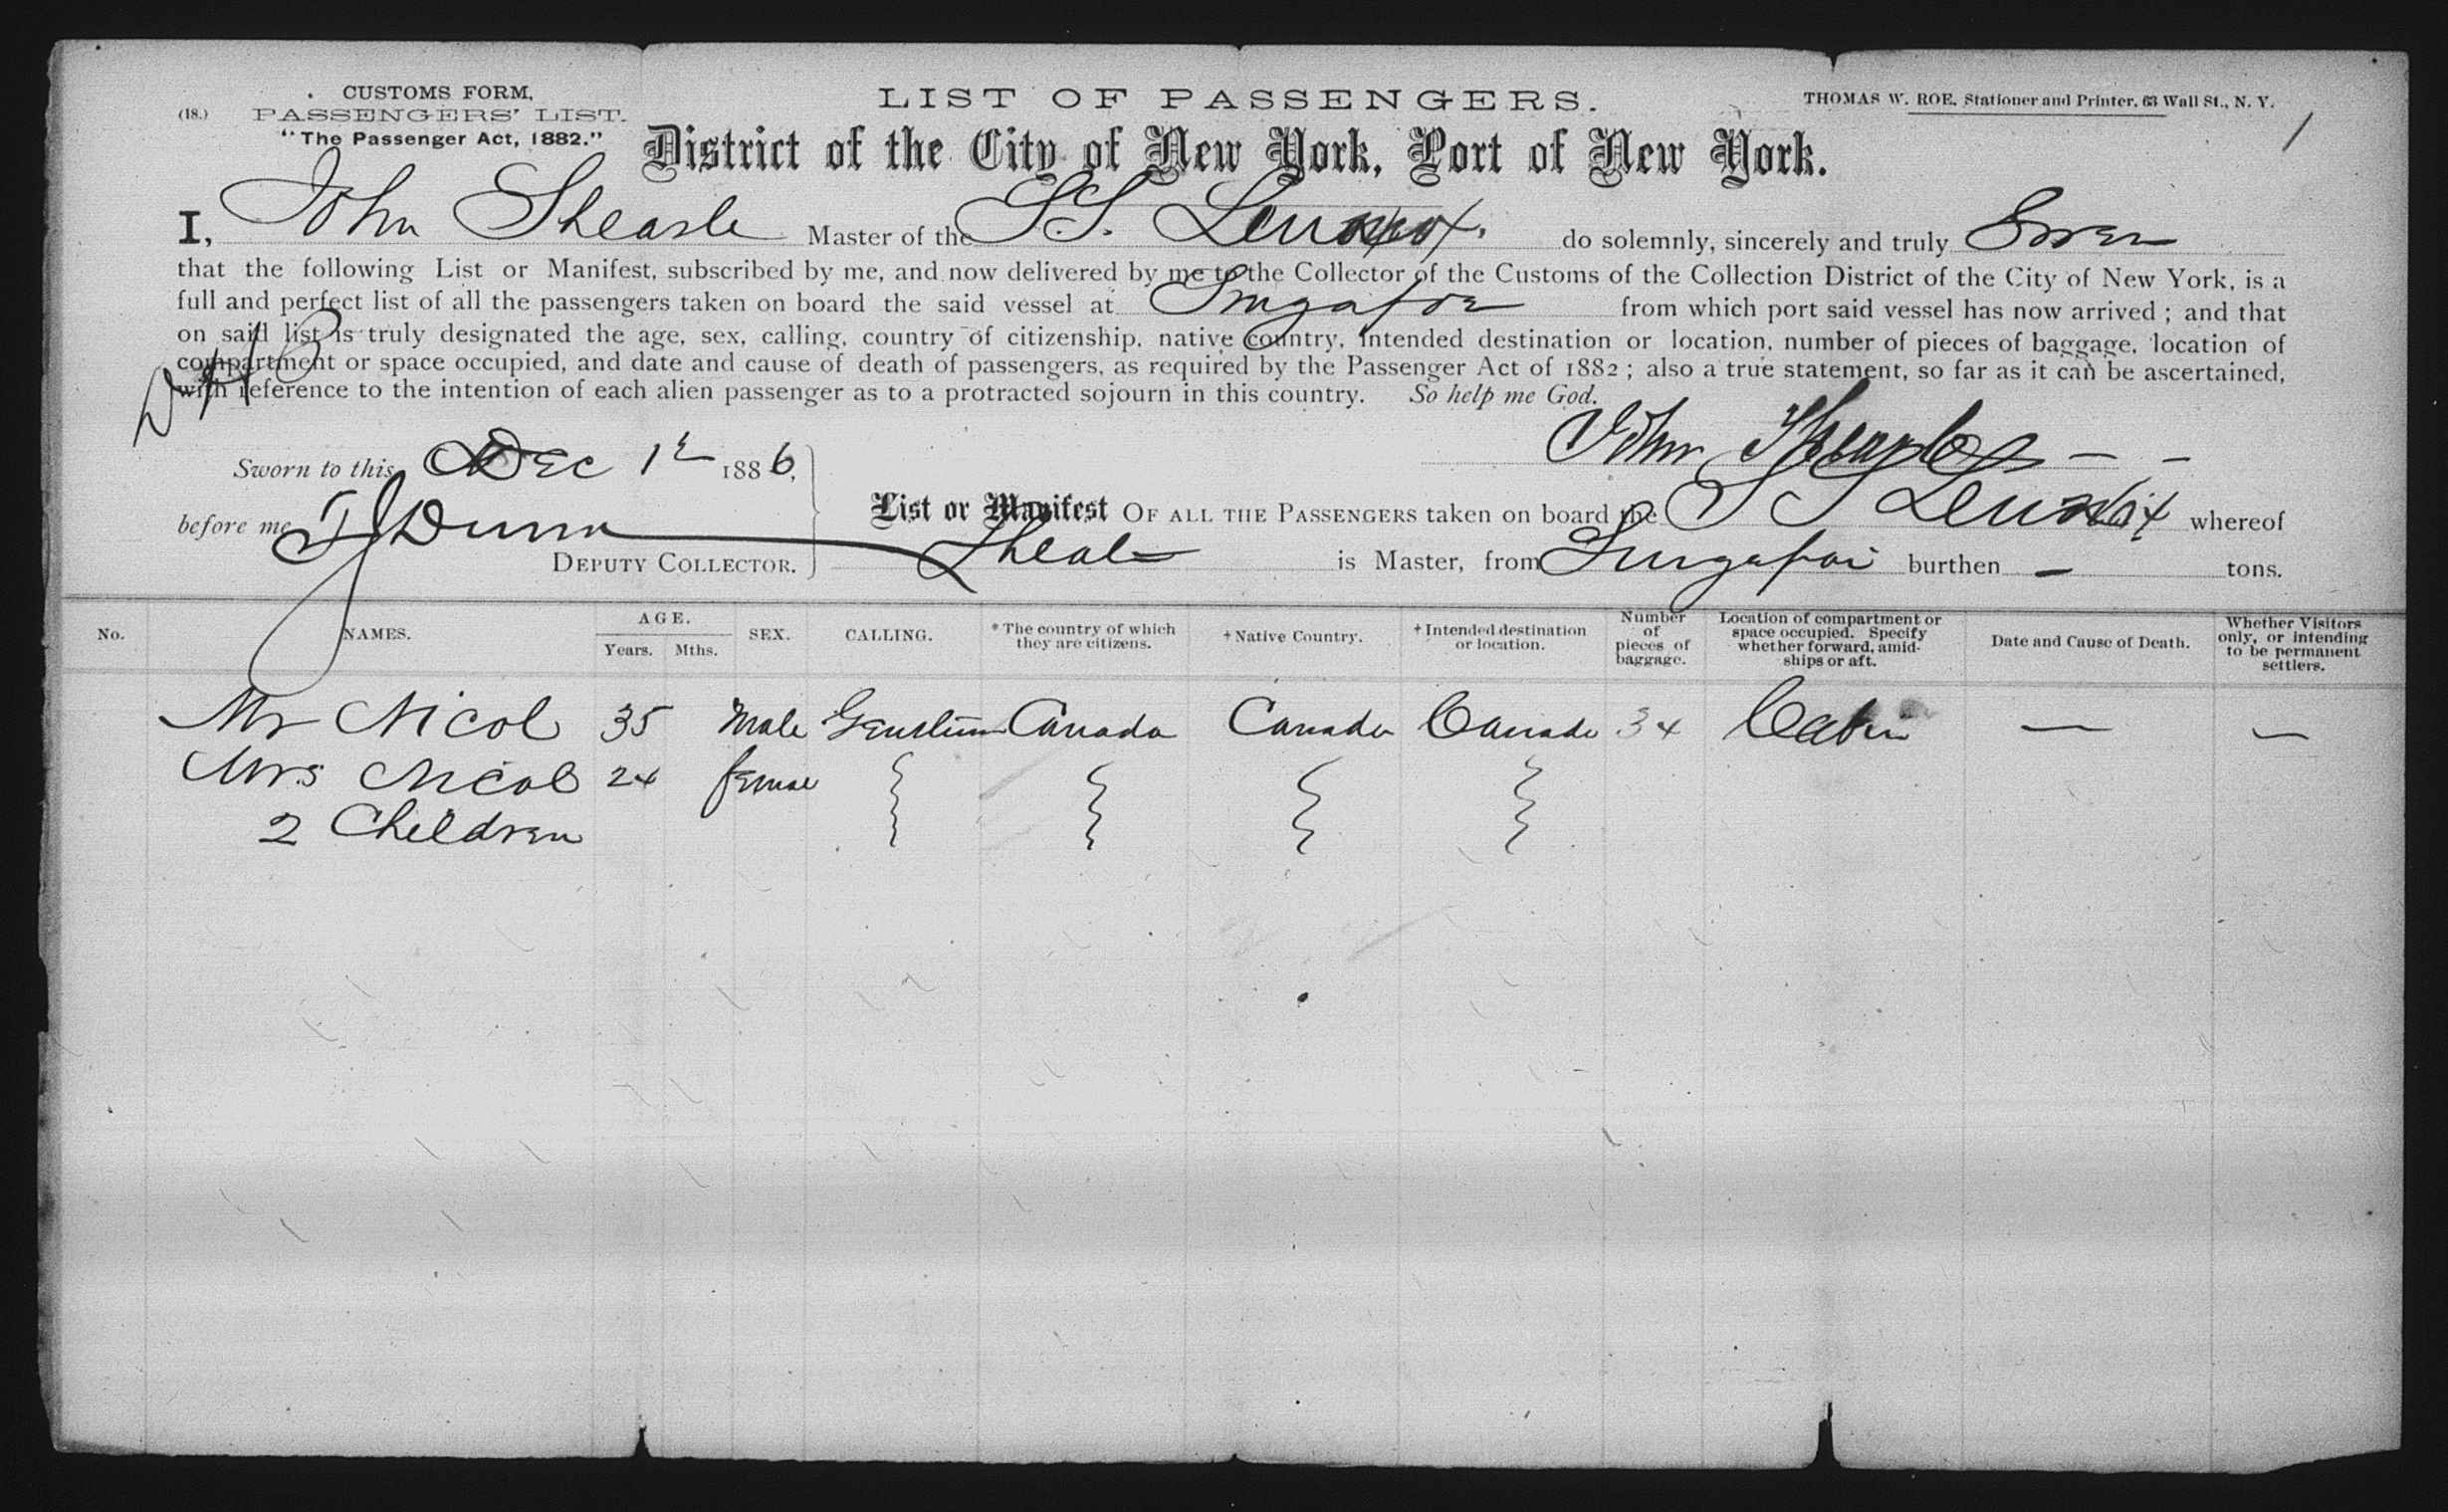 CUSTOMS FORM,
(18.) PASSENGERS' LIST.
"The Passenger Act, 1882."
LIST OF PASSENGERS.
THOMAS W. ROE, Stationer and Printer, 63 Wall St., N. Y.
1
District of the City of New York, Port of New York.
I, John Master of the S.S. Lennox, do solemnly, sincerely and truly
that the following List or Manifest, subscribed by me, and now delivered by me to the Collector of the Customs of the Collection District of the City of New York, is a
full and perfect list of all the passengers taken on board the said vessel at Singapore from which port said vessel has now arrived ; and that
on said list is truly designated the age, sex, calling, country of citizenship, native country, intended destination or location, number of pieces of baggage, location of
compartment or space occupied, and date and cause of death of passengers, as required by the Passenger Act of 1882 ; also a true statement, so far as it can be ascertained,
with reference to the intention of each alien passenger as to a protracted sojourn in this country. So help me God.
John
Sworn to this Dec 1 1886,
before me Dunn
DEPUTY COLLECTOR.
List or Manifest OF ALL THE PASSENGERS taken on board the SS Lennox whereof
is Master, from burthen — tons.
No. NAMES. AGE. Years. Mths. SEX. CALLING. * The country of which they are citizens. † Native Country. † Intended destination or location. Number of pieces of baggage. Location of compartment or space occupied. Specify whether forward, amidships or aft. Date and Cause of Death. Whether Visitors only, or intending to be permanent settlers.
Mr Nicol 35 Male Canada Canada Canada 34 Cabin — —
Mrs Nicol 24 female
2 Children